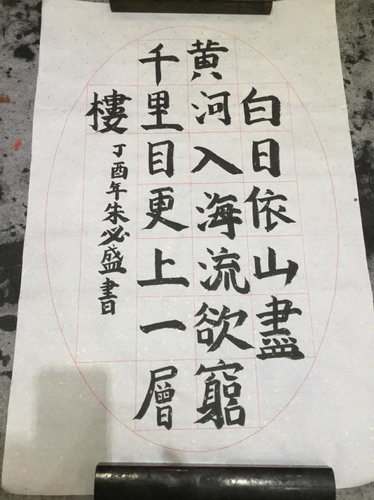 白日依山盡
黄河入海流欲窮
千里目更上一層
樓
丁酉年朱必盛書